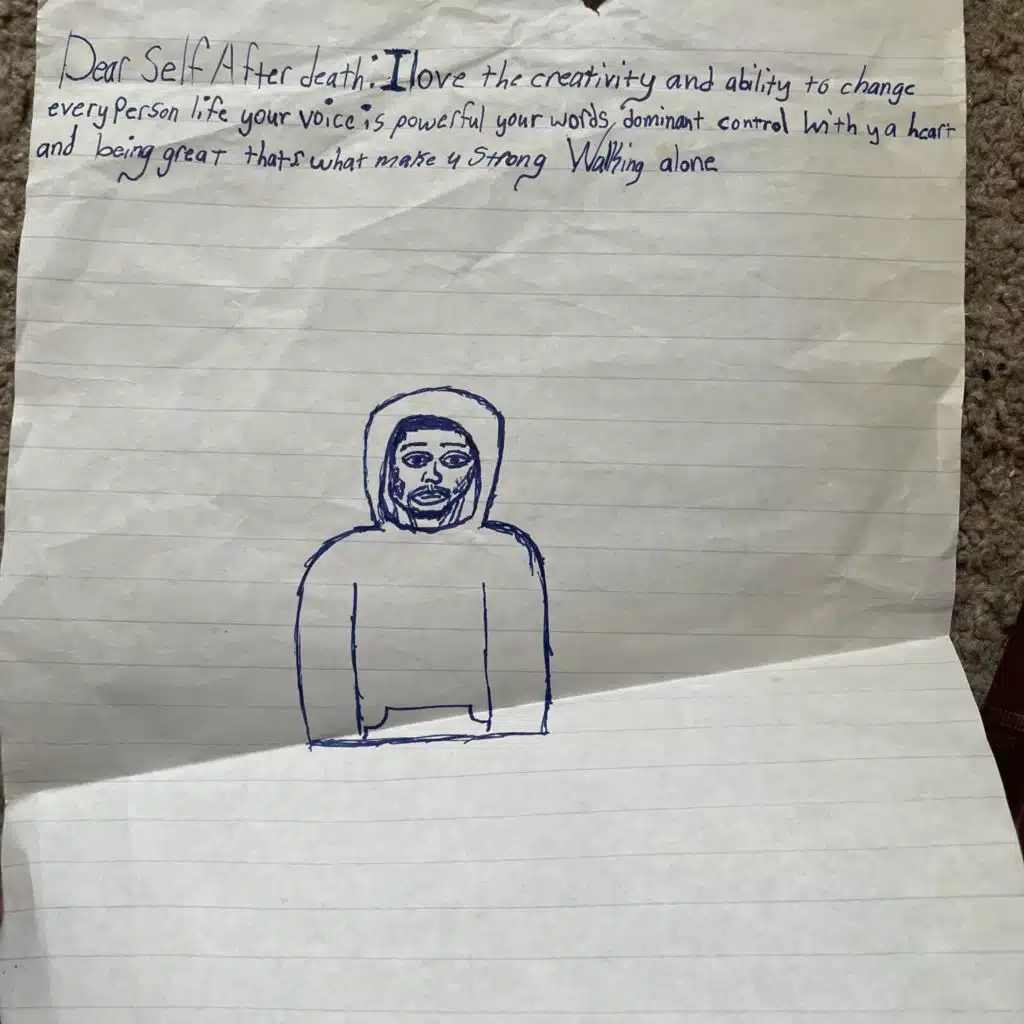 Dear Self After death: I love the creativity and ability to change
every Person life your voice is powerful your words, dominant control with ya heart
and being great that's what make u Strong Walking alone